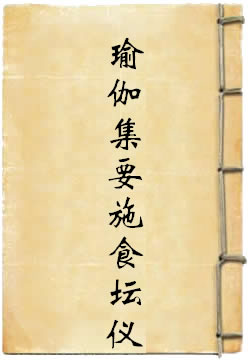 瑜伽集要施食坛仪